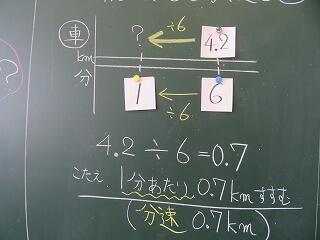 車
÷6
? 4.2
km
分
1 6
÷6
?
4.2÷6=0.7
こたえ 1分あたり0.7kmすすむ
(分速 0.7km)